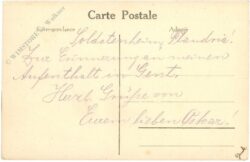 Carte Postale
Correspondance
Adresse
Soldatenheim Flandria.
Zur Erinnerung an meinen
Aufenthalt in Gent.
Herzl. Grüße von
Eurem lieben Oskar.